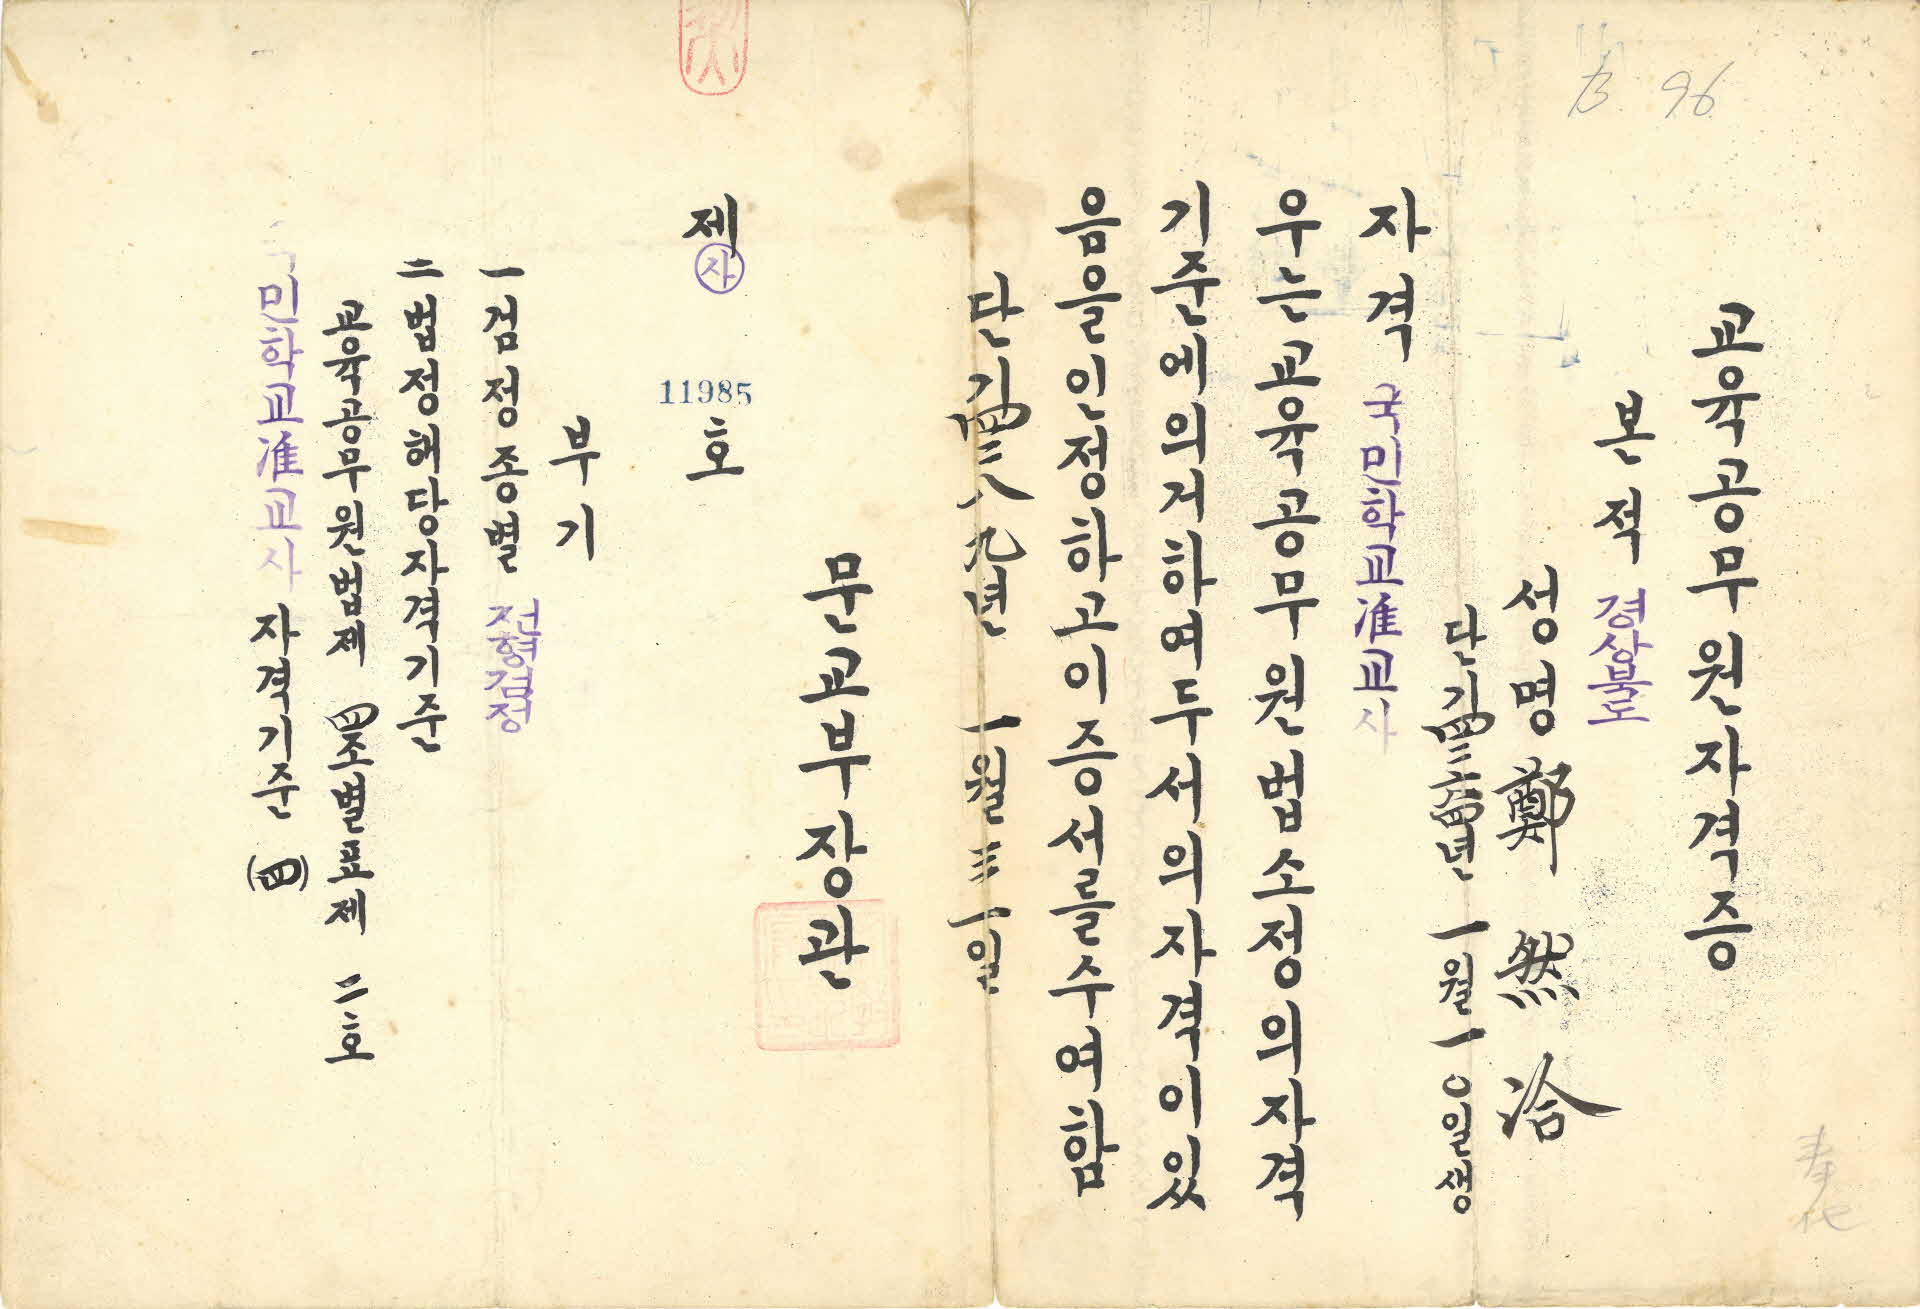 교육공무원자격증
본적 경상북도
성명 鄭然洽
단기四二六四년 一월 一○일생
자격 국민학교准교사
우는교육공무원법소정의자격
기준에의거하여두서의자격이있
음을인정하고이증서를수여함
단기四二八九년 一월 三一일
문교부장관
제 자 11985 호
부기
一 검정종별 전형검정
二 법정해당자격기준
교육공무원법제 四조별표제 二호
국민학교准교사 자격기준 (四)
B 96
奉化